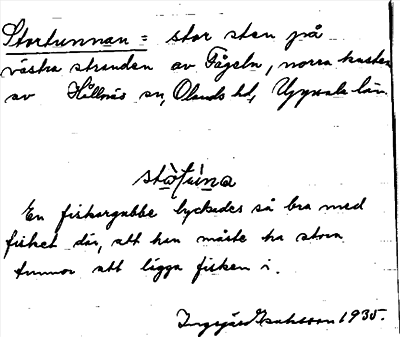 Stortunnan = stor sten på
västra stranden av Fågeln, norra kusten
av Hållnäs sn, Olands hd, Uppsala län.
En fiskargubbe lyckades så bra med
fisket där, att han måste ha stora
tunnor att lägga fisken i.
Ingegärd Isaksson 1935.